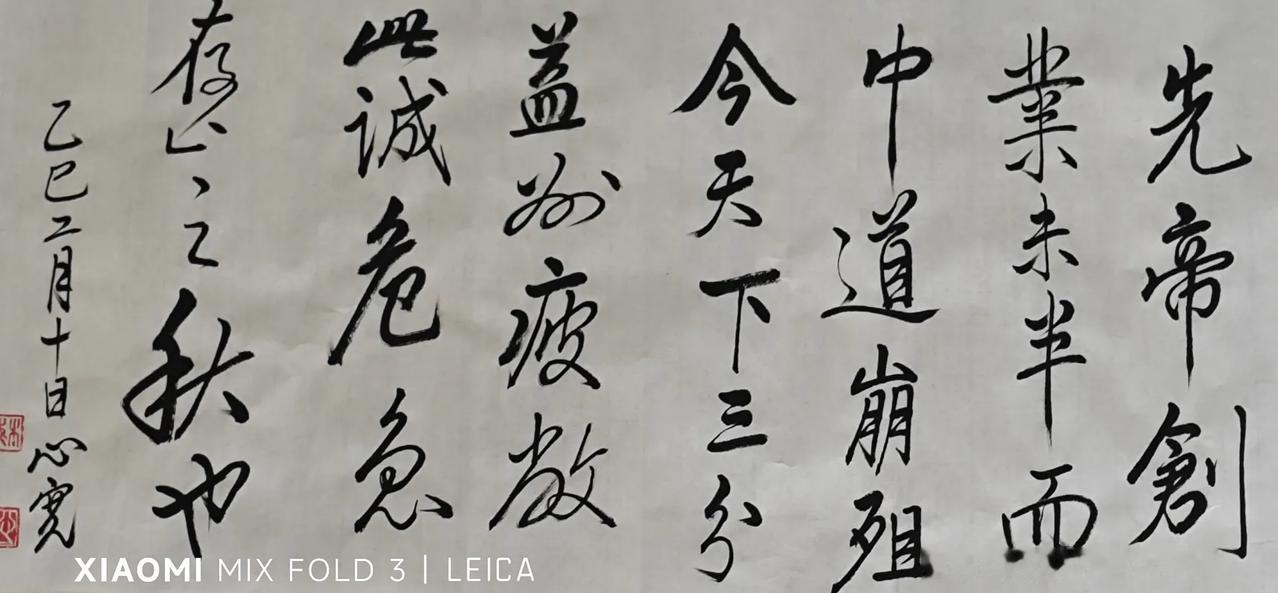 先帝創
業未半而
中道崩殂
今天下三分
益州疲敝
此誠危急
存亡之秋也
乙巳二月十日心寬
XIAOMI MIX FOLD 3 | LEICA